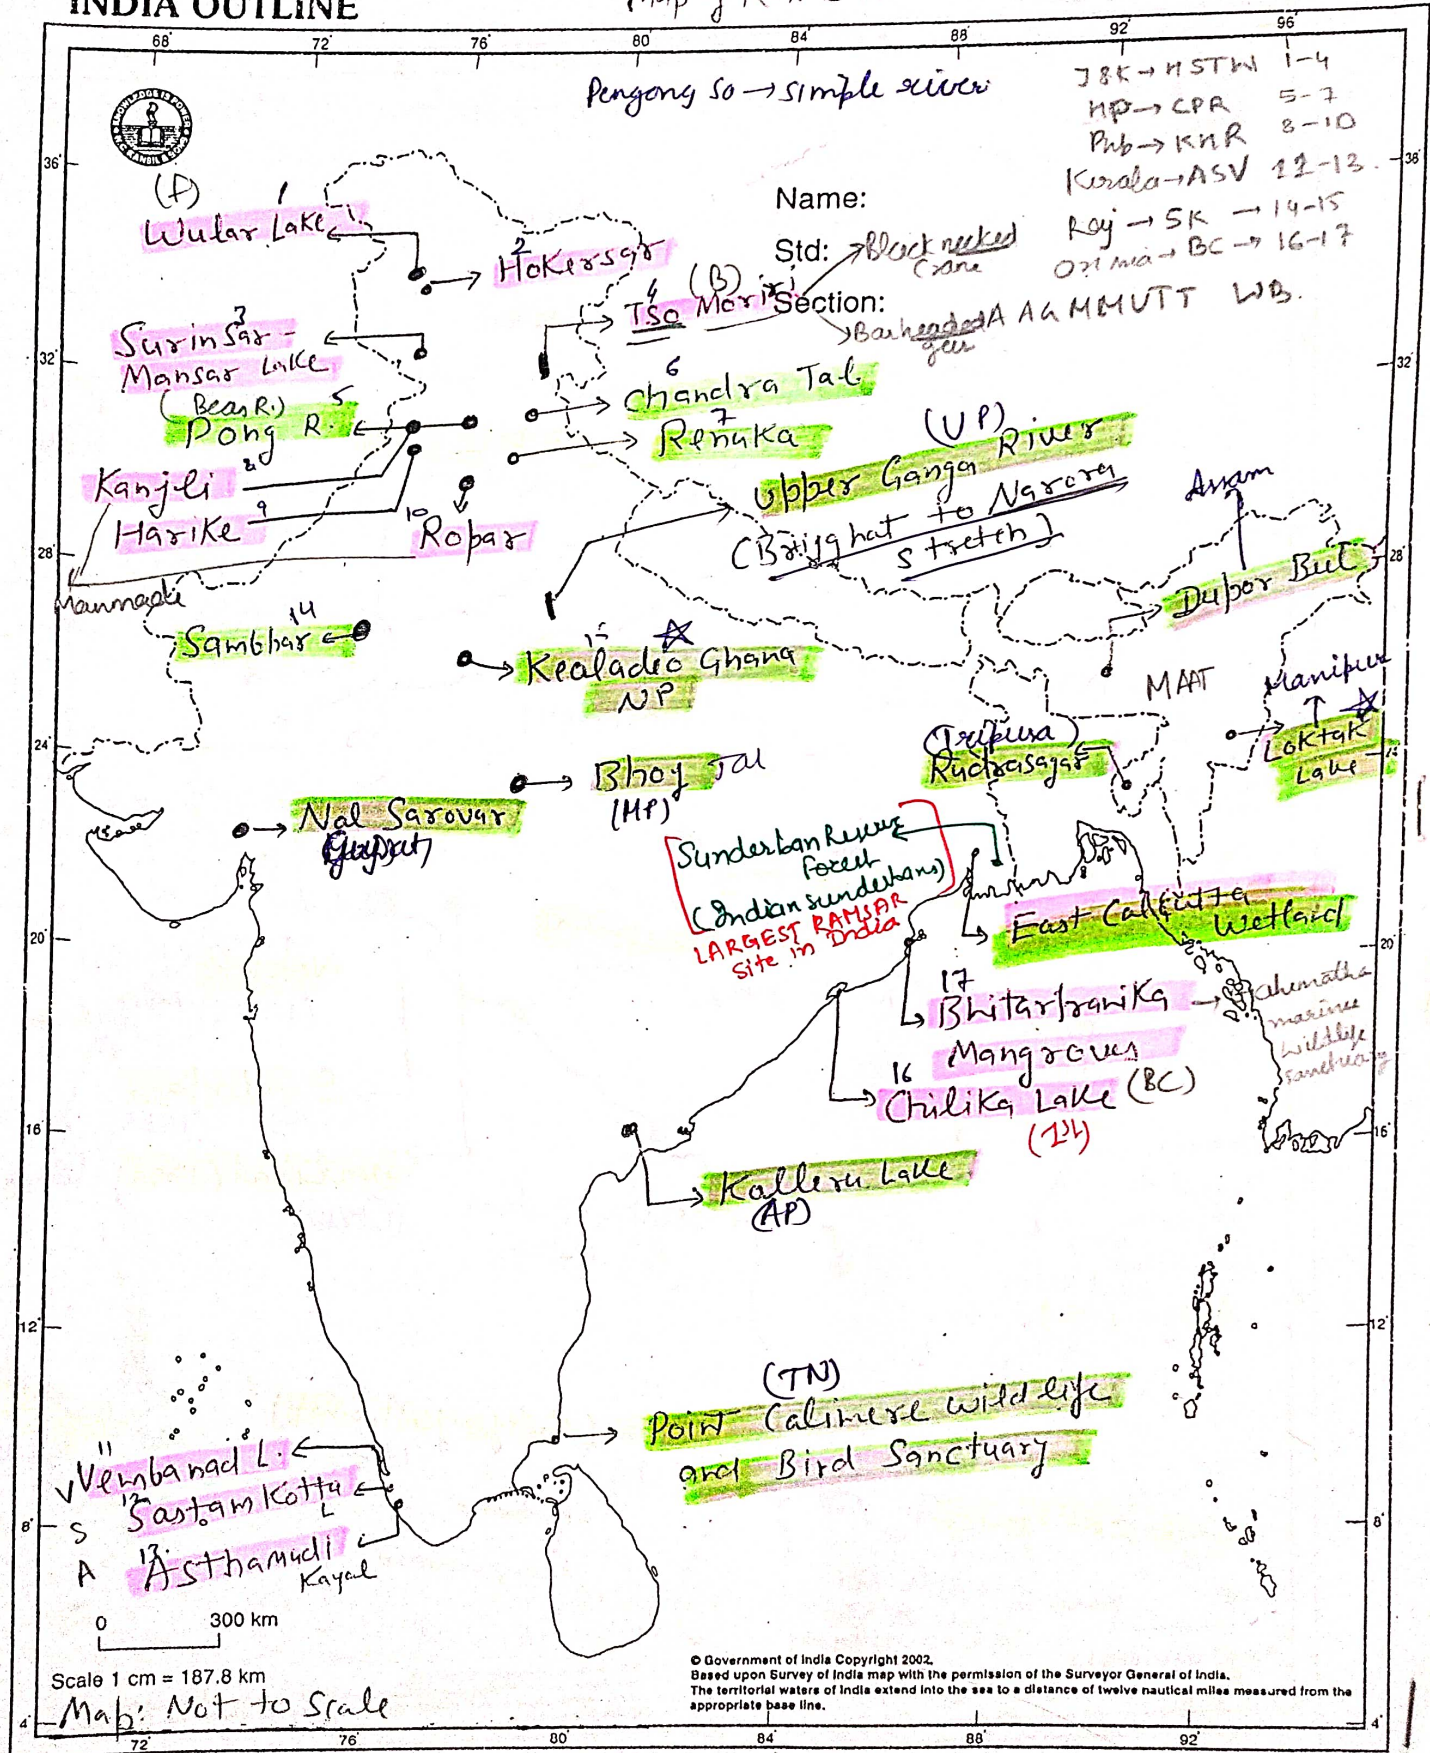 INDIA OUTLINE
Map of
68° 72° 76° 80 84 88 92 96°
Pengong So → simple river
J&K → HSTW 1-4
HP → CPR 5-7
Pnb → KHR 8-10
Kerala → ASV 11-13.
Raj → SK → 14-15
Orissia → BC → 16-17
A AG MMUTT WB.
KNOWLEDGE IS POWER
36°
38°
Name:
Std:
Section:
Black necked
Crane
Barheaded
geese
(P)
1
Wular Lake
2
Hokersar
(B)
4
TSO Moriri
3
Surinsar -
Mansar Lake
32°
32°
(Beas R.) 5
Pong R.
6
Chandra Tal
7
Renuka
8
Kanjli
9
Harike
10
Ropar
Manmade
(UP)
Upper Ganga River
(Brijghat to Narora
stretch)
Assam
28°
28°
Dupor Bul
14
Sambhar
15
Kealadeo Ghana
NP
MAAT
Manipur
Loktak
Lake
(Tripura)
Rudrasagar
24°
Bhoj Tal
(MP)
Nal Sarovar
(Gujrat)
Sunderban Reserve
Forest
(Indian sunderbans)
LARGEST RAMSAR
Site in India
East Calcutta
Wetland
20°
20°
17
Bhitarkanika
Mangroves
marine
wildlife
sanctuary
16
Chilika Lake (BC)
(1st)
16°
16°
Kolleru Lake
(AP)
12°
12°
(TN)
Point Calimere wildlife
and Bird Sanctuary
11
Vembanad L.
V
12
Sastamkotta
L
S
13.
Asthamudi
Kayal
A
8°
8°
0 300 km
Scale 1 cm = 187.8 km
Map: Not to Scale
© Government of India Copyright 2002.
Based upon Survey of India map with the permission of the Surveyor General of India.
The territorial waters of India extend into the sea to a distance of twelve nautical miles measured from the
appropriate base line.
4°
4°
72° 76° 80° 84 88° 92°